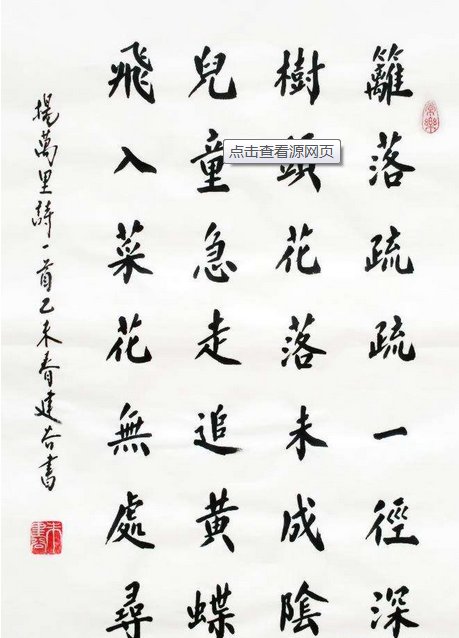 籬落疏疏一徑深
樹頭花落未成陰
兒童急走追黃蝶
飛入菜花無處尋
楊萬里詩一首乙未春建谷書
点击查看源网页